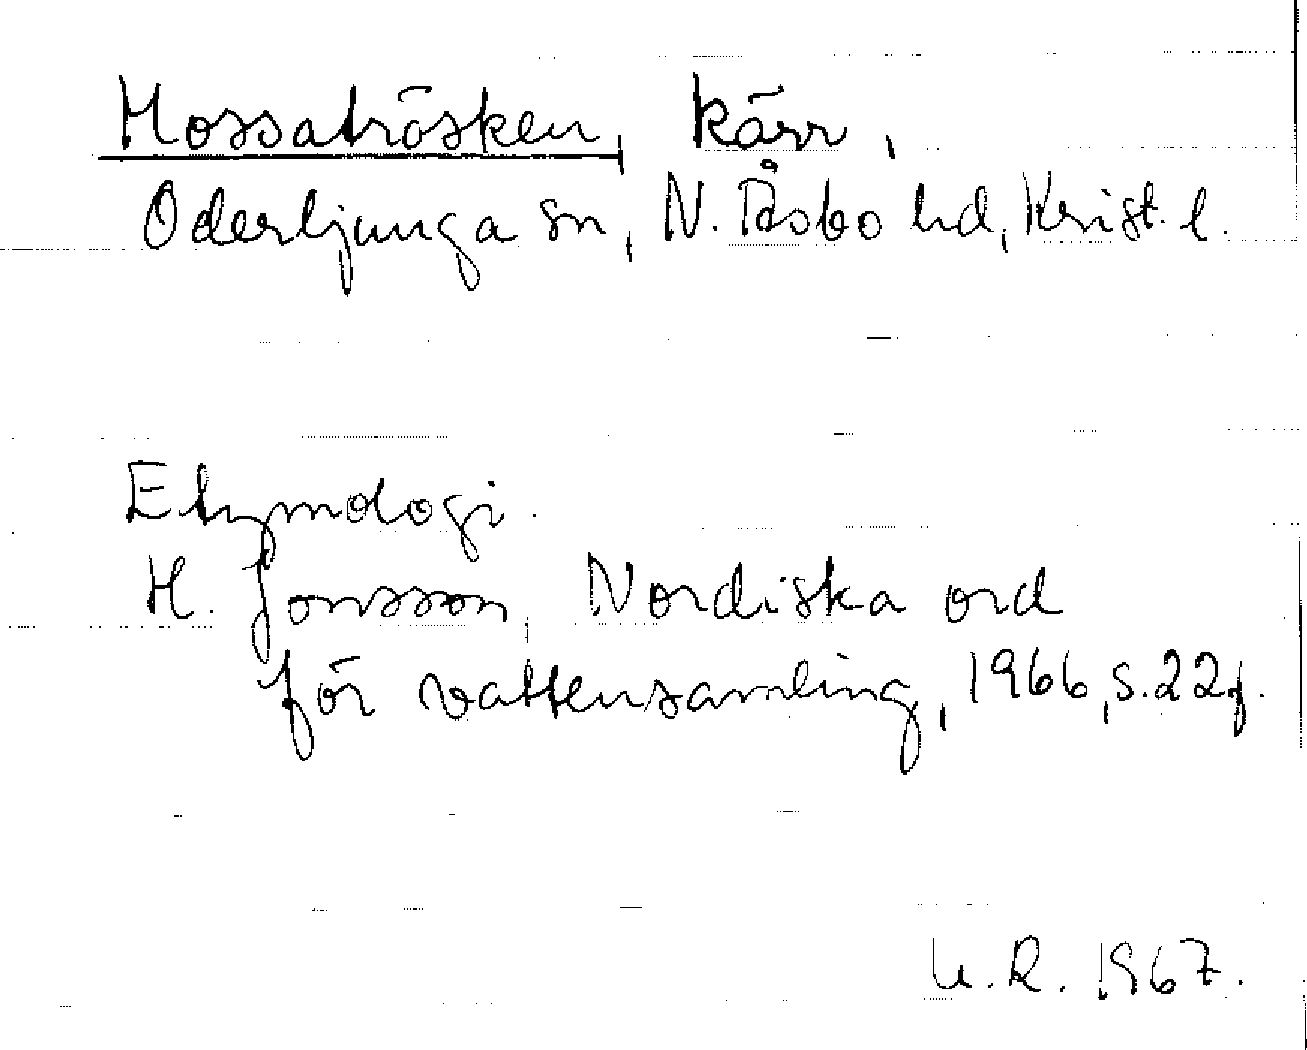 Mossatrösken, kärr,
Oderljunga sn, N. Åsbo hd, Krist. l.
Etymologi.
H. Jonsson, Nordiska ord
för vattensamling, 1966, s. 22f.
U.R. 1967.